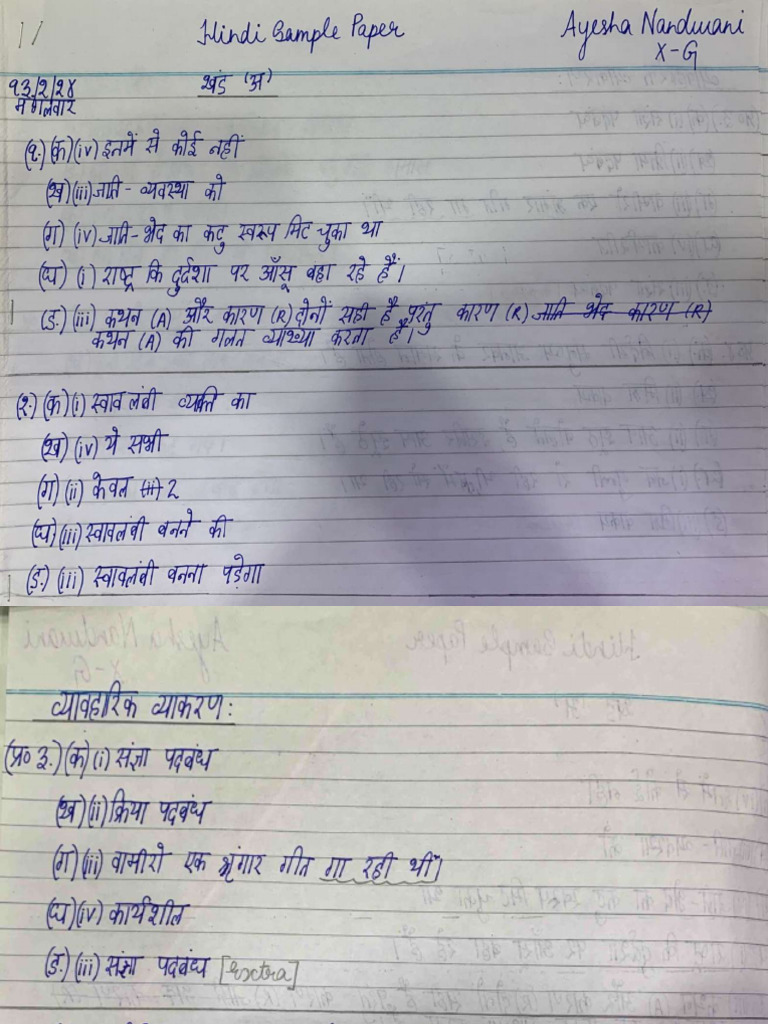 Hindi Sample Paper
Ayesha Nandwani
X-G
१३/२/२४
मंगलवार
खंड (अ)
(१.) (क) (iv) इनमें से कोई नहीं
(ख) (iii) जाति-व्यवस्था को
(ग) (iv) जाति-भेद का कटु स्वरूप मिट चुका था
(घ) (i) राष्ट्र कि दुर्दशा पर आँसू बहा रहे हैं।
(ङ.) (iii) कथन (A) और कारण (R) दोनों सही है परंतु कारण (R) जाति भेद कारण (R)
कथन (A) की गलत व्याख्या करता है।
(२.) (क) (i) स्वावलंबी व्यक्ति का
(ख) (iv) ये सभी
(ग) (ii) केवल (ii) 2
(घ) (iii) स्वावलंबी बनने की
(ङ.) (iii) स्वावलंबी बनना पड़ेगा
व्यावहारिक व्याकरण:
(प्र० ३.) (क) (i) संज्ञा पदबंध
(ख) (ii) क्रिया पदबंध
(ग) (ii) वामीरो एक श्रृंगार गीत गा रही थी।
(घ) (iv) कार्यशील
(ङ.) (iii) संज्ञा पदबंध [extra]